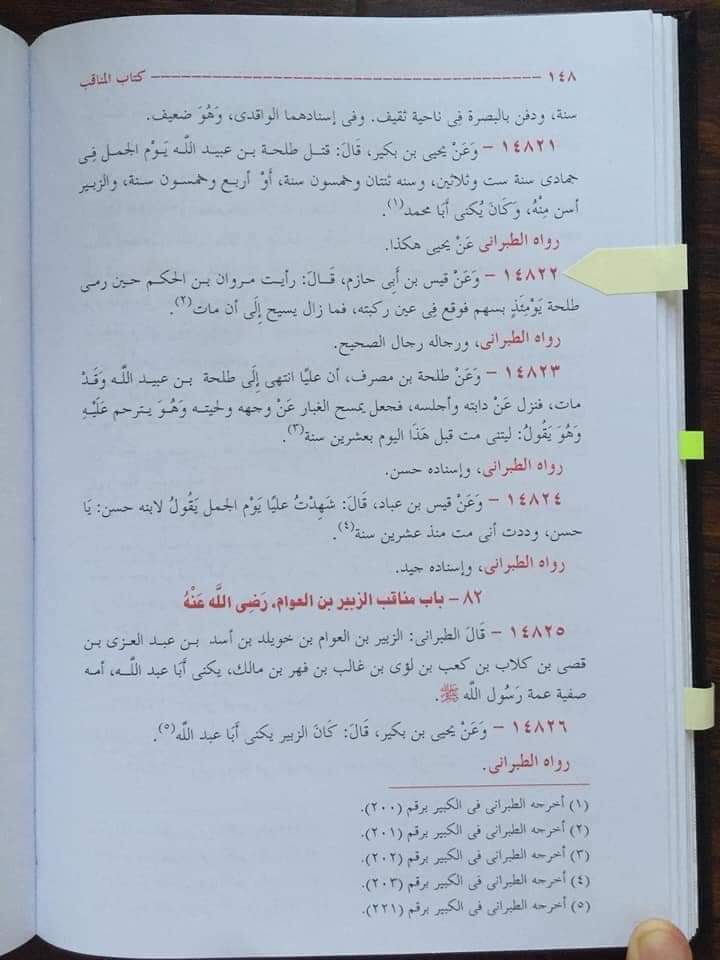 ١٤٨ ــــــــــــــــــــــــــــــــــــــــ كتاب المناقب
سنة، ودفن بالبصرة فى ناحية ثقيف. وفى إسنادهما الواقدى، وَهُوَ ضعيف.
١٤٨٢١ – وَعَنْ يحيى بن بكير، قَالَ: قتل طلحة بن عبيد اللَّه يَوْم الجمل فِى
جمادى سنة ست وثلاثين، وسنه ثنتان وخمسون سنة، أَوْ أربع وخمسون سنة، والزبير
أسن مِنْهُ، وَكَانَ يُكنى أَبَا محمد(١).
رواه الطبرانى عَنْ يحيى هكذا.
١٤٨٢٢ – وَعَنْ قيس بن أَبِى حازم، قَالَ: رأيت مروان بن الحكم حين رمى
طلحة يَوْمِئِذٍ بسهم فوقع فِى عين ركبته، فما زال يسيح إِلَى أن مات(٢).
رواه الطبرانى، ورجاله رجال الصحيح.
١٤٨٢٣ – وَعَنْ طلحة بن مصرف، أن عليًا انتهى إِلَى طلحة بن عبيد اللَّه وَقَدْ
مات، فنزل عَنْ دابته وأجلسه، فجعل يمسح الغبار عَنْ وجهه ولحيته وَهُوَ يترحم عَلَيْهِ
وَهُوَ يَقُولُ: ليتنى مت قبل هَذَا اليوم بعشرين سنة(٣).
رواه الطبرانى، وإسناده حسن.
١٤٨٢٤ – وَعَنْ قيس بن عباد، قَالَ: شَهِدْتُ عليًا يَوْم الجمل يَقُولُ لابنه حسن: يَا
حسن، وددت أنى مت منذ عشرين سنة(٤).
رواه الطبرانى، وإسناده جيد.
٨٢ – باب مناقب الزبير بن العوام، رَضِى اللَّه عَنْهُ
١٤٨٢٥ – قَالَ الطبرانى: الزبير بن العوام بن خويلد بن أسد بن عبد العزى بن
قصى بن كلاب بن كعب بن لؤى بن غالب بن فهر بن مالك، يكنى أَبَا عبد اللَّه، أمه
صفية عمة رَسُول اللَّه ﷺ.
١٤٨٢٦ – وَعَنْ يحيى بن بكير، قَالَ: كَانَ الزبير يكنى أَبَا عبد اللَّه(٥).
رواه الطبرانى.
(١) أخرجه الطبرانى فى الكبير برقم (٢٠٠).
(٢) أخرجه الطبرانى فى الكبير برقم (٢٠١).
(٣) أخرجه الطبرانى فى الكبير برقم (٢٠٢).
(٤) أخرجه الطبرانى فى الكبير برقم (٢٠٣).
(٥) أخرجه الطبرانى فى الكبير برقم (٢٢١).